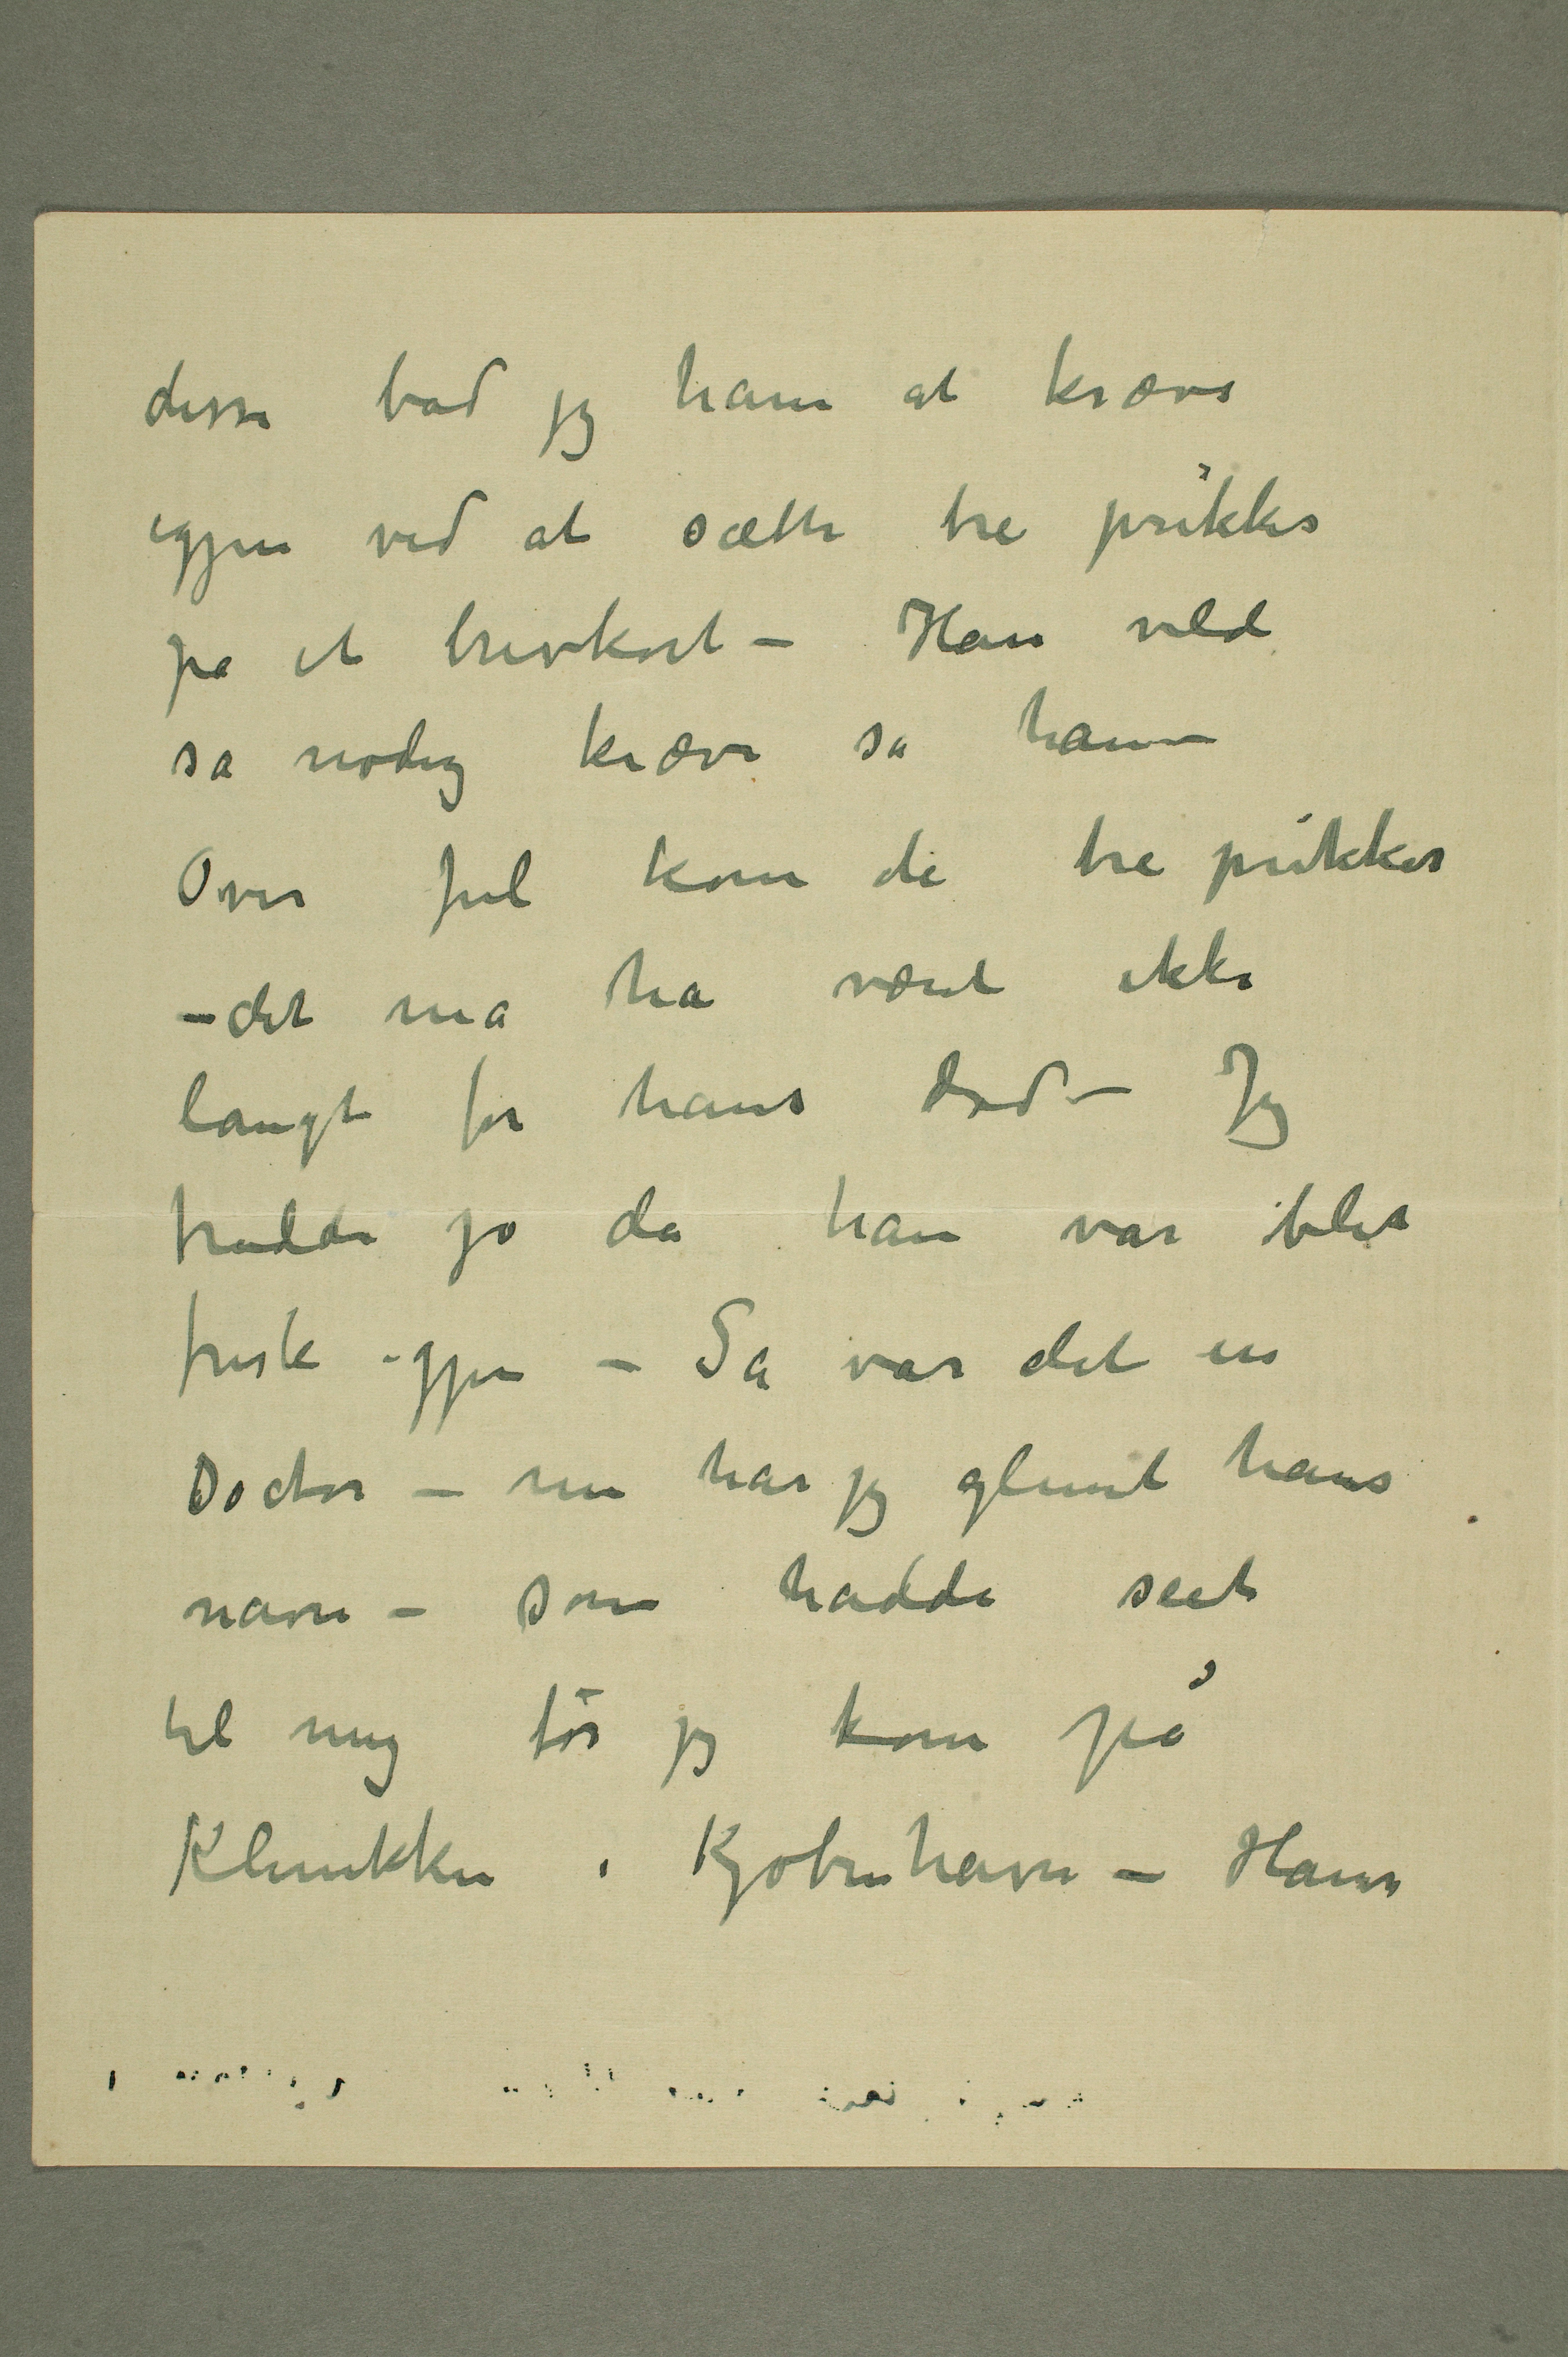 disse bad jeg ham at kræve
igjen ved at sætte tre prikker
pa et brevkort – Han vild
sa nødig kræve sa han –
Over Jul kom de tre prikker
– det ma ha været ikke
langt før hans død – Jeg
trudde jo da han var blet
frisk igjen – Sa var det en
Doctor – nu har jeg glemt hans
navn – som hadde seet
til mig før jeg kom på
Klinikken i Kjøbenhavn – Hans